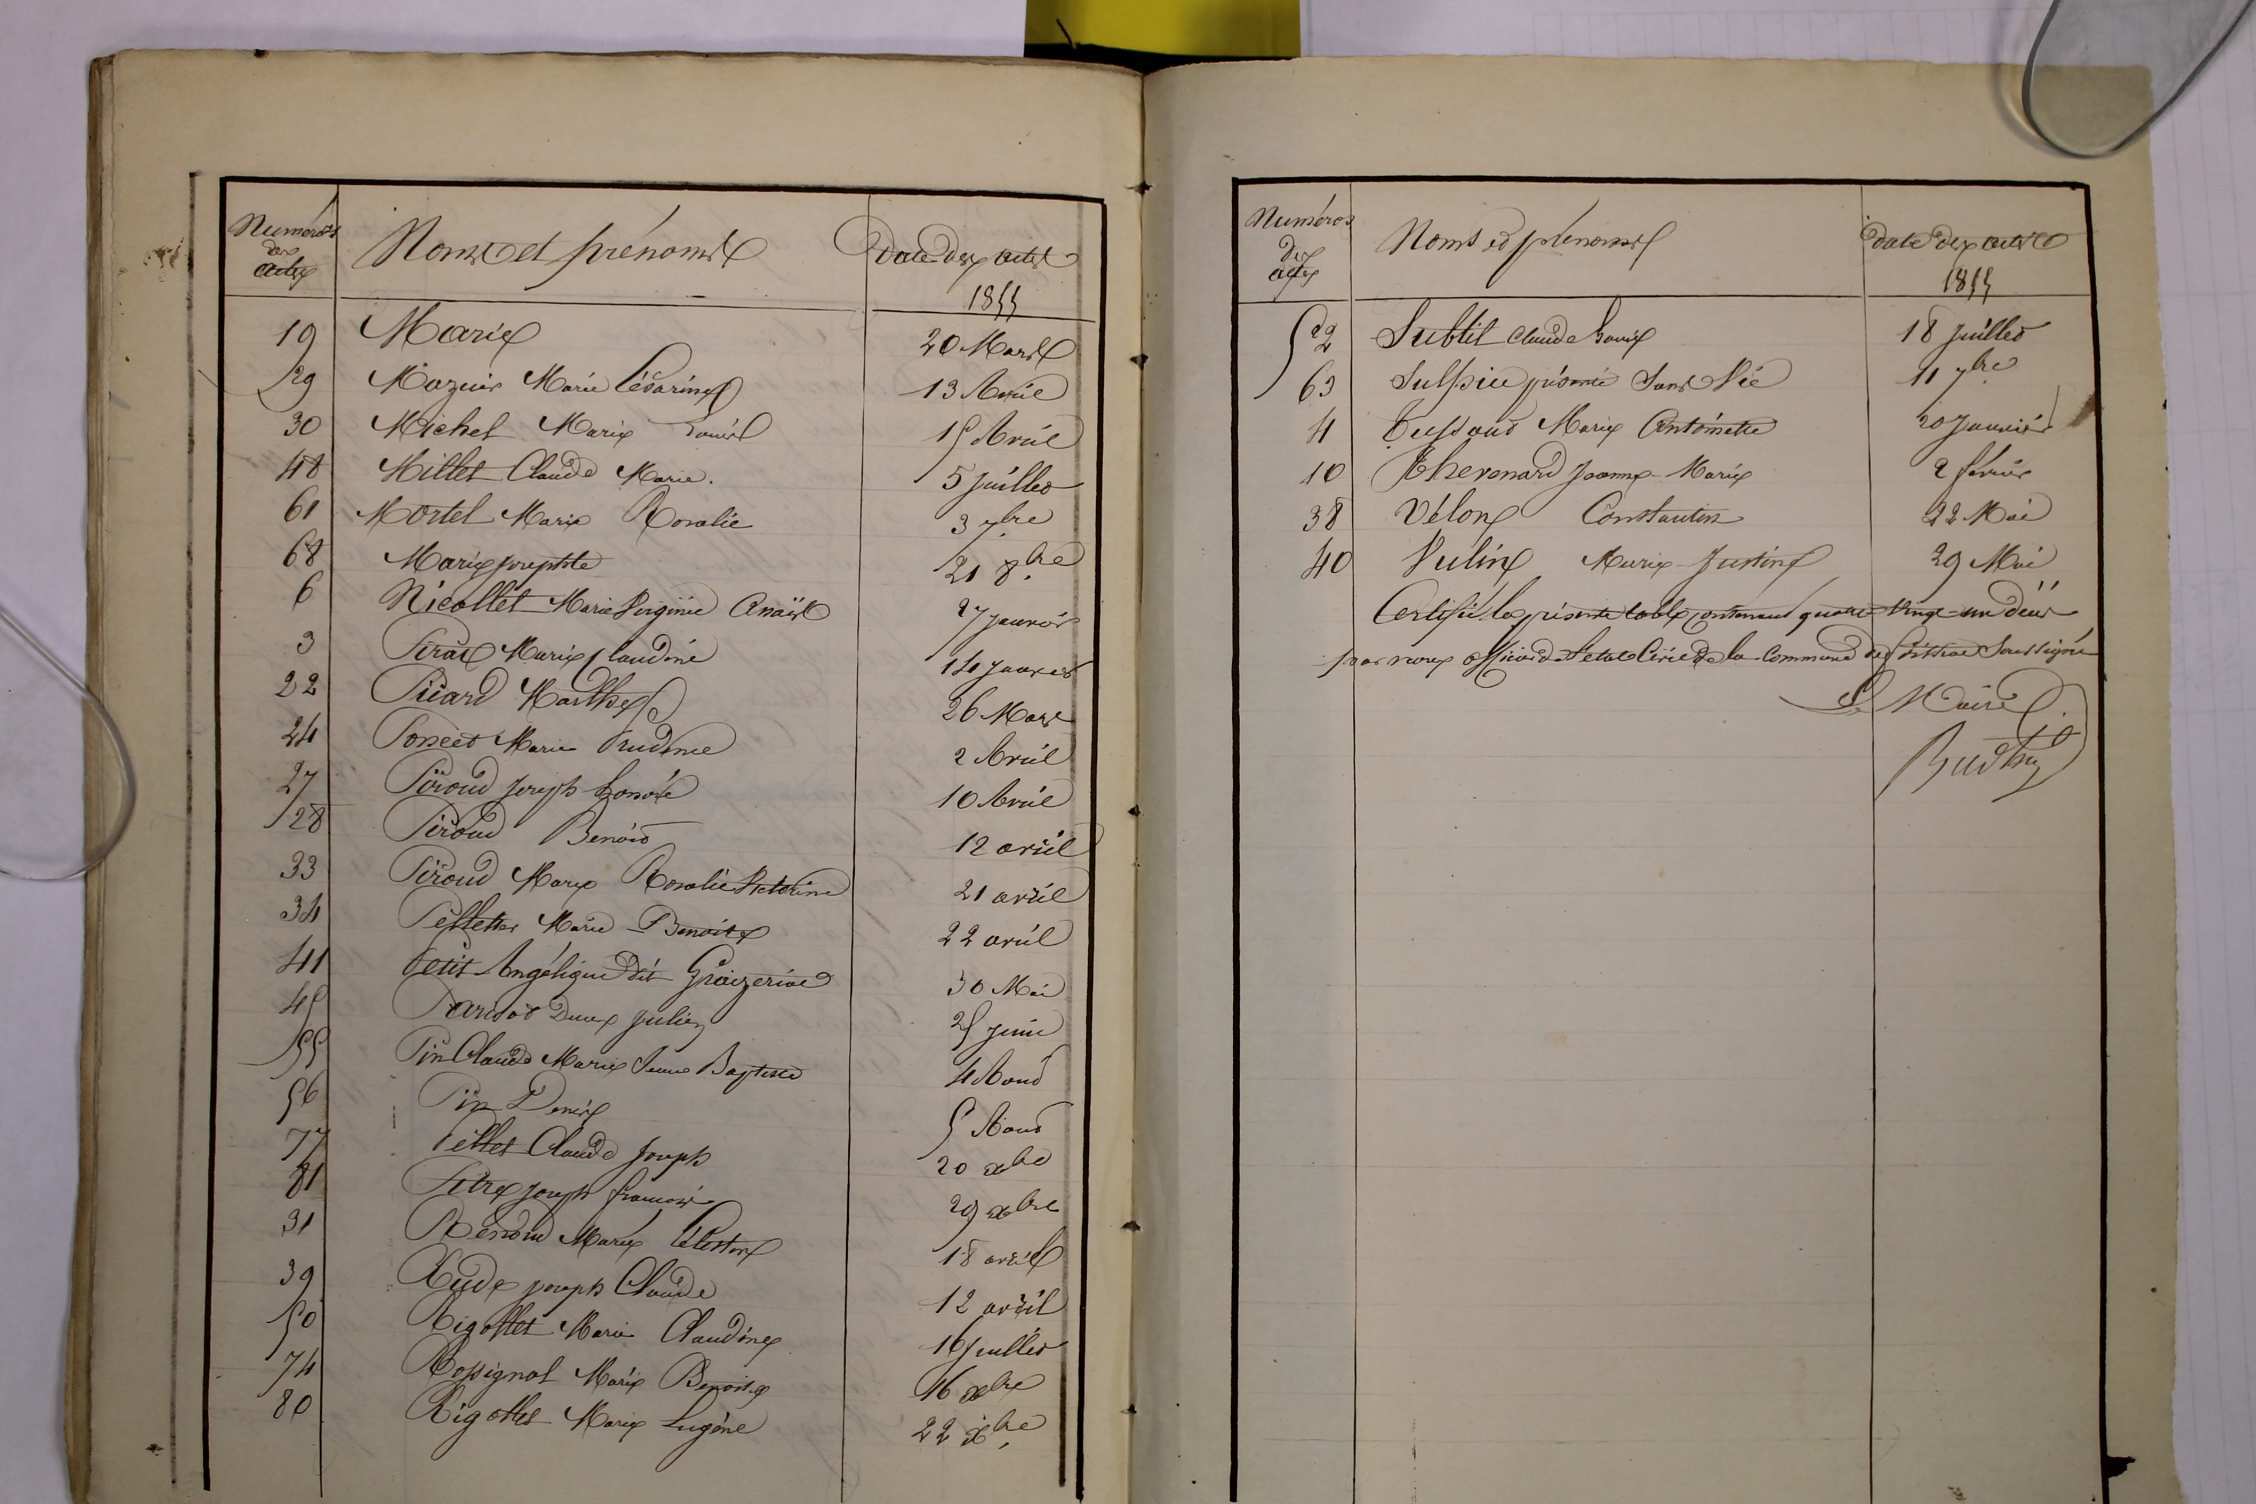 Numéros des actes Noms et prénoms Date des actes
1855
19 Marie 20 Mars
29 Mazuir Marie Césarine 13 Avril
30 Michel Marie Louise 15 Avril
48 Millet Claude Marie. 5 Juillet
61 Mortel Marie Rosalie 3 7bre
68 Marie Josephte 21 8bre
6 Nicollet Marie Virginie Anaïs 27 Janvier
3 Marie Claudine 14 Janvier
22 Picard Marthe 26 Mars
24 Poncet Marie Prudence 2 Avril
27 Piroud Joseph honoré 10 Avril
28 Piroud Benoit 12 avril
33 Piroud Marie Rosalie Victorine 21 avril
34 Pelletier Marie Benoite 22 avril
41 Petit Angélique dit 30 Mai
45 Parisot Julien 25 Juin
55 Pin Claude Marie Jean Baptiste 4 Aout
56 Pin Denis 5 Aout
77 Pillet Claude Joseph 20 xbre
81 Petre Joseph francois 29 xbre
31 Renoud Marie Célestine 18 avril
39 Rude Joseph Claude 12 avril
50 Rigollet Marie Claudine 16 Juillet
74 Rossignol Marie Benoite 16 xbre
80 Rigollet Marie Eugène 22 xbre
Numéros des actes Noms et prénoms date des actes
1855
52 Subtil Claude Louis 18 Juillet
63 Sulpice présenté Sans Vie 11 7bre
4 Tussaud Marie Antoinette 20 Janvier
10 Thevenard Jeanne Marie 2 février
38 Vélon Constantin 22 Mai
40 Vulin Marie Justine 29 Mai
Certifié la présente table contenant quatre Vingt un
par nous officier de l'etat Civil de la Commune de Soussigné
Le Maire